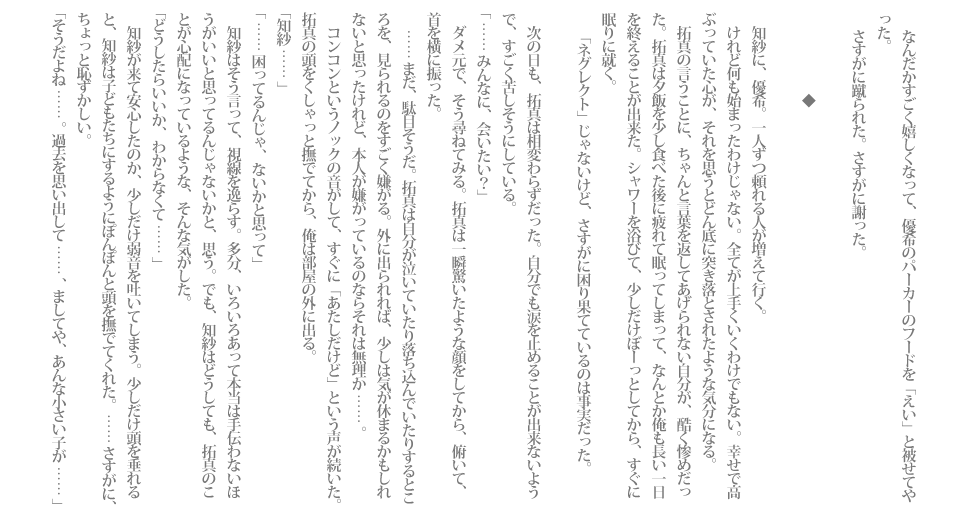 なんだかすごく嬉しくなって、優希のパーカーのフードを「えい」と被せてや
った。
さすがに蹴られた。さすがに謝った。
◆
知紗に、優希。一人ずつ頼れる人が増えて行く。
けれど何も始まったわけじゃない。全てが上手くいくわけでもない。幸せで高
ぶっていた心が、それを思うとどん底に突き落とされたような気分になる。
拓真の言うことに、ちゃんと言葉を返してあげられない自分が、酷く惨めだっ
た。拓真は夕飯を少し食べた後に疲れて眠ってしまって、なんとか俺も長い一日
を終えることが出来た。シャワーを浴びて、少しだけぼーっとしてから、すぐに
眠りに就く。
「ネグレクト」じゃないけど、さすがに困り果てているのは事実だった。
次の日も、拓真は相変わらずだった。自分でも涙を止めることが出来ないよう
で、すごく苦しそうにしている。
「……みんなに、会いたい？」
ダメ元で、そう尋ねてみる。拓真は一瞬驚いたような顔をしてから、俯いて、
首を横に振った。
……まだ、駄目そうだ。拓真は自分が泣いていたり落ち込んでいたりするとこ
ろを、見られるのをすごく嫌がる。外に出られれば、少しは気が休まるかもしれ
ないと思ったけれど、本人が嫌がっているのならそれは無理か……。
コンコンというノックの音がして、すぐに「あたしだけど」という声が続いた。
拓真の頭をくしゃっと撫でてから、俺は部屋の外に出る。
「知紗……」
「……困ってるんじゃ、ないかと思って」
知紗はそう言って、視線を逸らす。多分、いろいろあって本当は手伝わないほ
うがいいと思ってるんじゃないかと、思う。でも、知紗はどうしても、拓真のこ
とが心配になっているような、そんな気がした。
「どうしたらいいか、わからなくて……」
知紗が来て安心したのか、少しだけ弱音を吐いてしまう。少しだけ頭を垂れる
と、知紗は子どもたちにするようにぽんぽんと頭を撫でてくれた。……さすがに、
ちょっと恥ずかしい。
「そうだよね……。過去を思い出して……、ましてや、あんな小さい子が……」